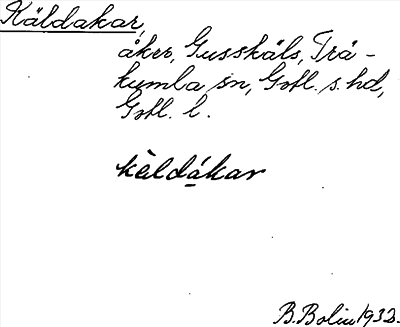 Käldakar,
åker, Gusskäls, Trä-
kumla sn, Gotl. s. hd,
Gotl. l.
kä̀ldákar
B. Bolin 1932.